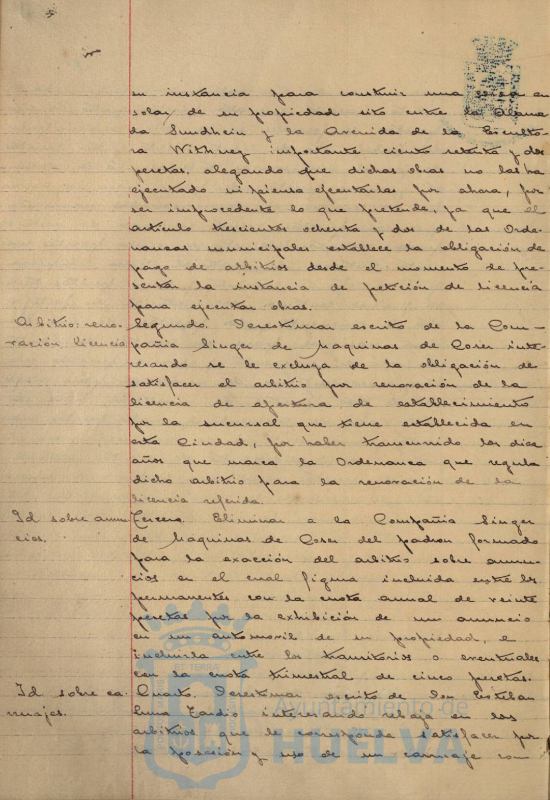 su instancia para construir una en
solar de su propiedad sito entre la Alame
da Sundhein y la Avenida de la Esculto
ra Withney importante ciento setenta y dos
pesetas, alegando que dichas obras no las ha
ejecutado ni piensa ejecutarlas por ahora, por
ser improcedente lo que pretende, ya que el
artículo trescientos ochenta y dos de las Orde-
nanzas municipales establece la obligación de
pago de arbitrios desde el momento de pre-
sentar la instancia de petición de licencia
para ejecutar obras.
Arbitrio: reno-
vación licencia
Segundo. Desestimar escrito de la Com-
pañia Singer de Maquinas de Coser inte-
resando se le excluya de la obligación de
satisfacer el arbitrio por renovación de la
licencia de apertura de establecimiento
por la sucursal que tiene establecida en
esta Ciudad, por haber transcurrido los diez
años que marca la Ordenanza que regula
dicho arbitrio para la renovación de la
licencia referida.
Id sobre anun-
cios.
Tercero. Eliminar a la Compañia Singer
de Maquinas de Coser del padron formado
para la exacción del arbitrio sobre anun-
cios en el cual figura incluida entre los
permanentes con la cuota annal de veinte
pesetas por la exhibición de un anuncio
en un automovil de su propiedad, e
incluirla entre los transitorios o eventuales
con la cuota trimestral de cinco pesetas.
Id sobre ca-
rruajes.
Cuarto. Desestimar escrito de Don Esteban
interesando rebaja en los
arbitrios que le corresponde satisfacer por
la posesión y uso de un carruaje con
Ayuntamiento de
HUELVA